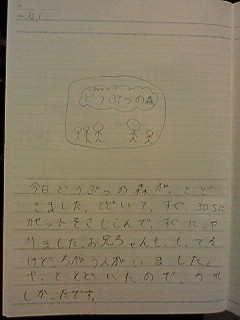 どうぶつの森
今日どうぶつの森が、とど
きました。とどいて、すぐ、3DSに
カセットそさしこんで、すぐに、や
りました。お兄ちゃんも、もってる
けどちがう人がいました。
やっととどいたので、うれ
しかったです。